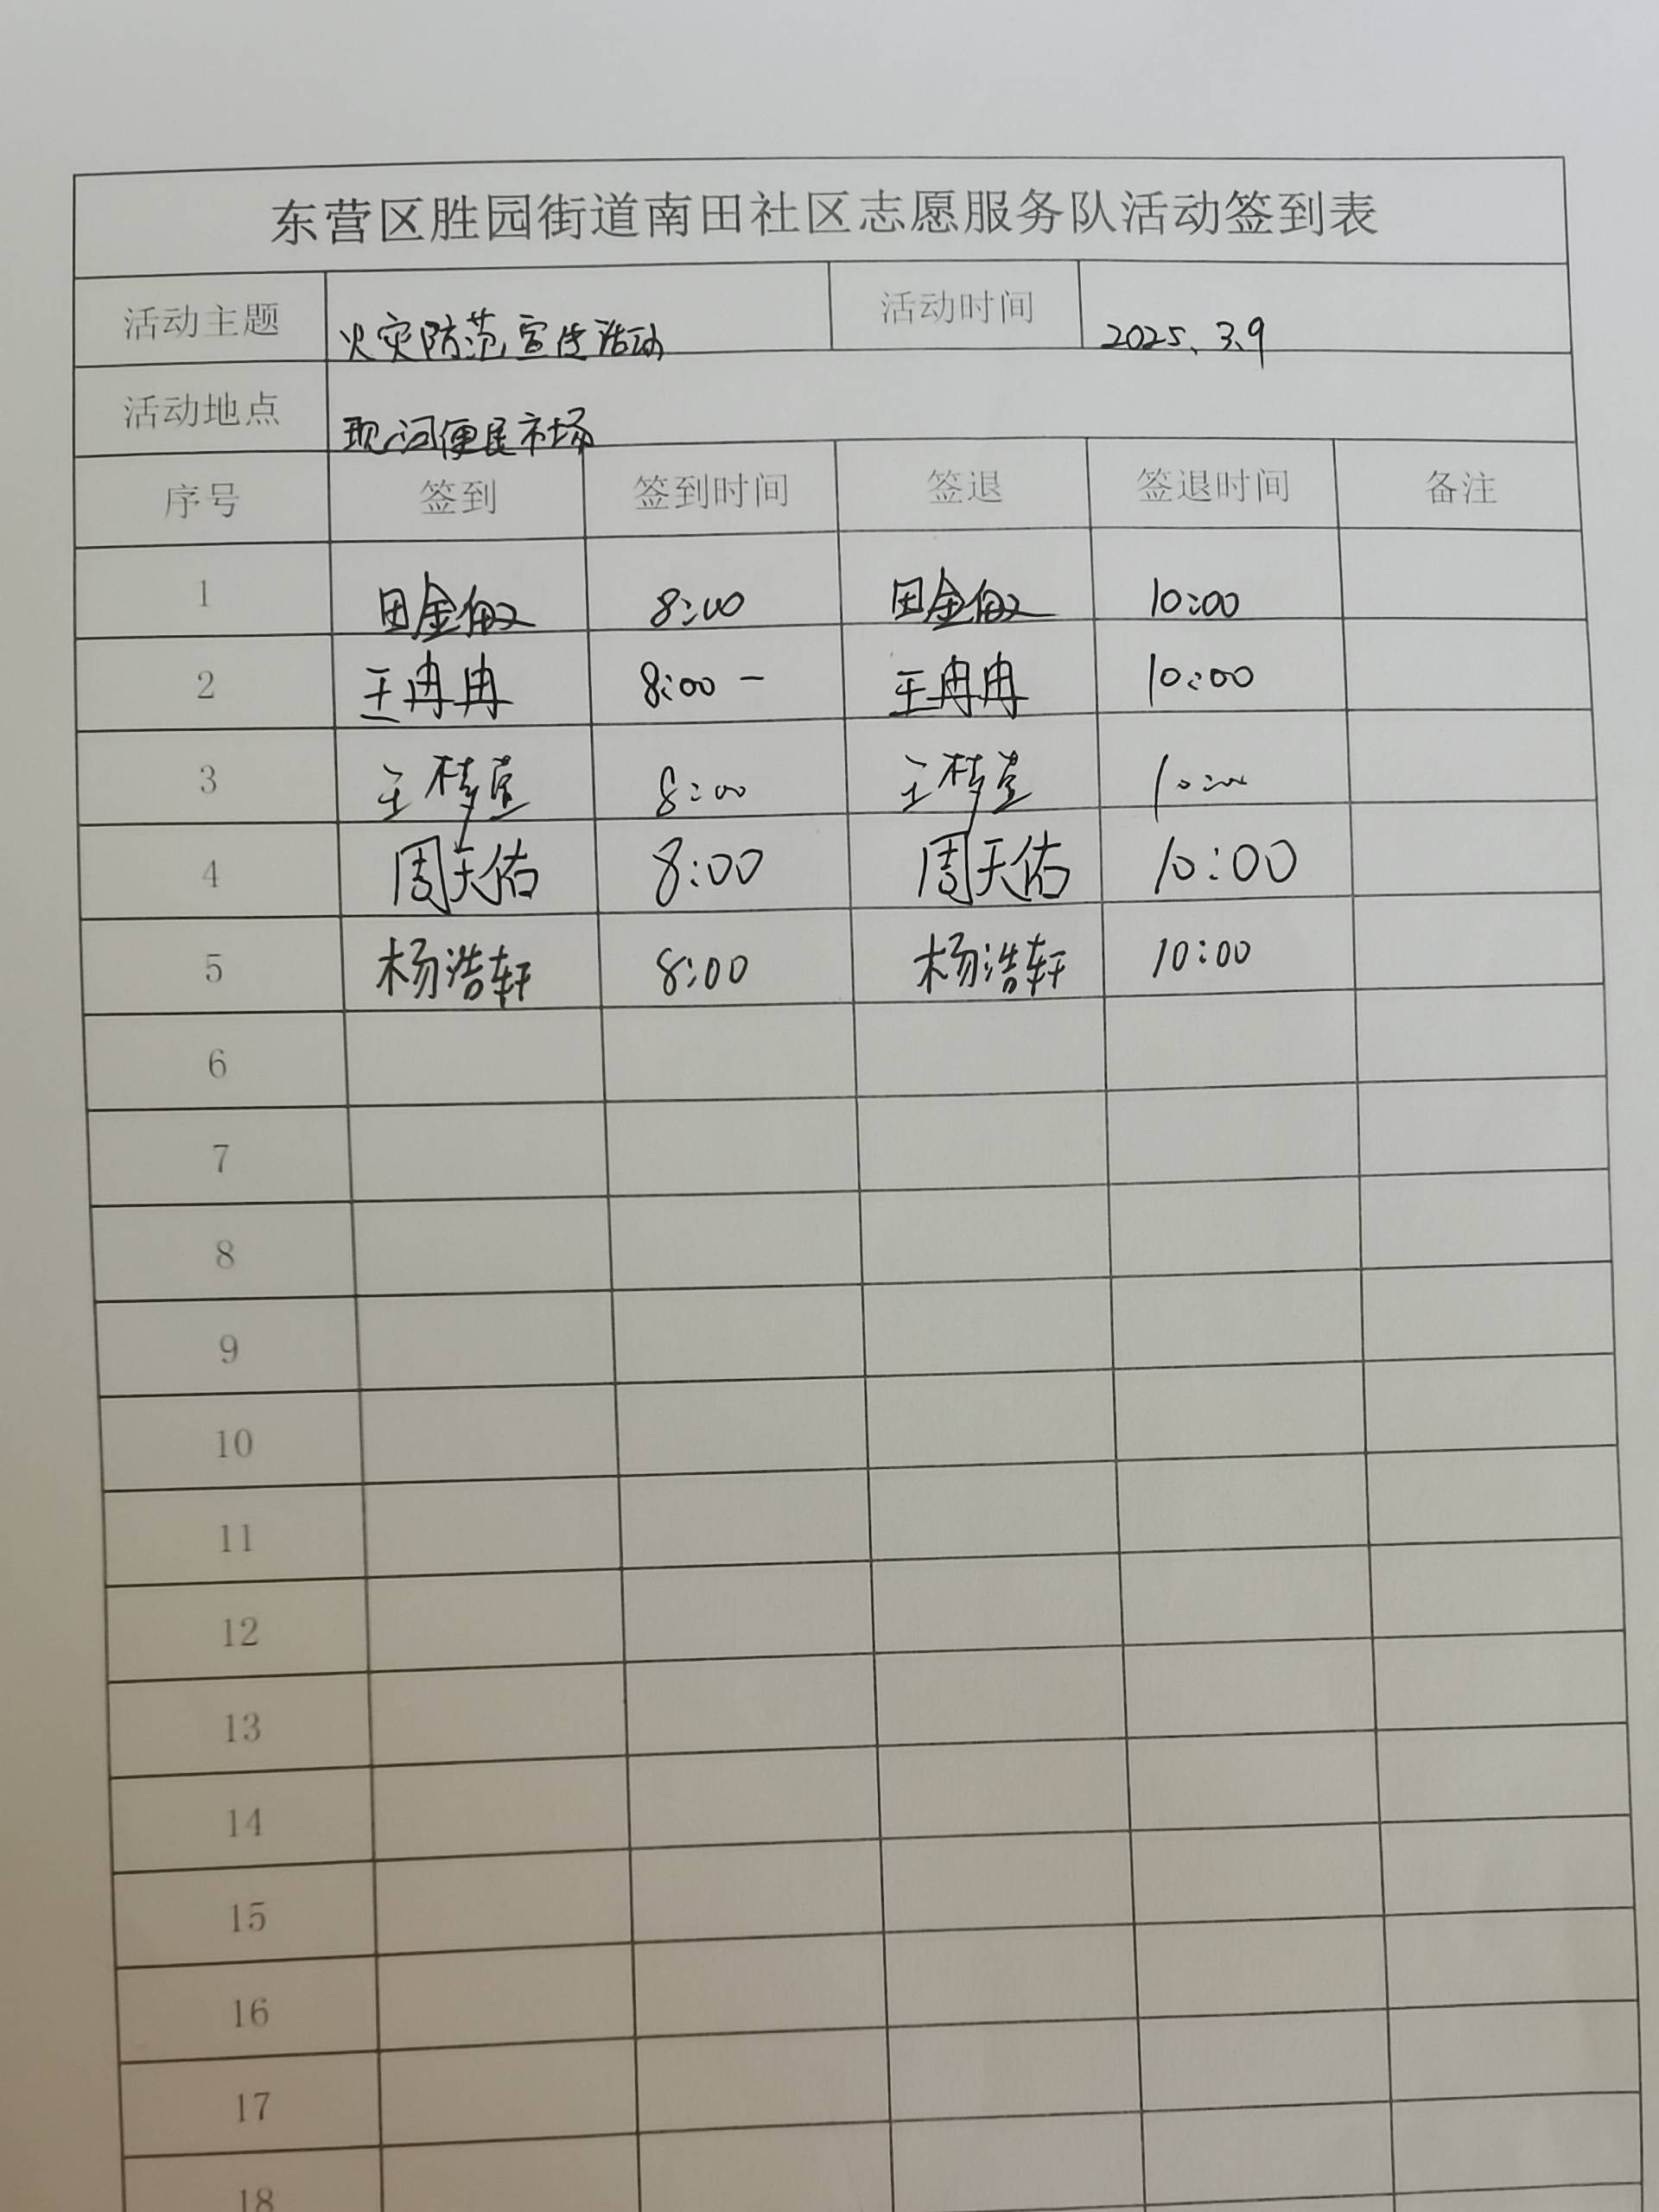 东营区胜园街道南田社区志愿服务队活动签到表
活动主题 火灾防范宣传活动 活动时间 2025、3、9
活动地点 现河便民市场
序号 签到 签到时间 签退 签退时间 备注
1 田金 8:00 田金 10:00
2 王冉冉 8:00 - 王冉冉 10:00
3 王梦 8:00 王梦 10:00
4 周天佑 8:00 周天佑 10:00
5 杨浩轩 8:00 杨浩轩 10:00
6
7
8
9
10
11
12
13
14
15
16
17
18